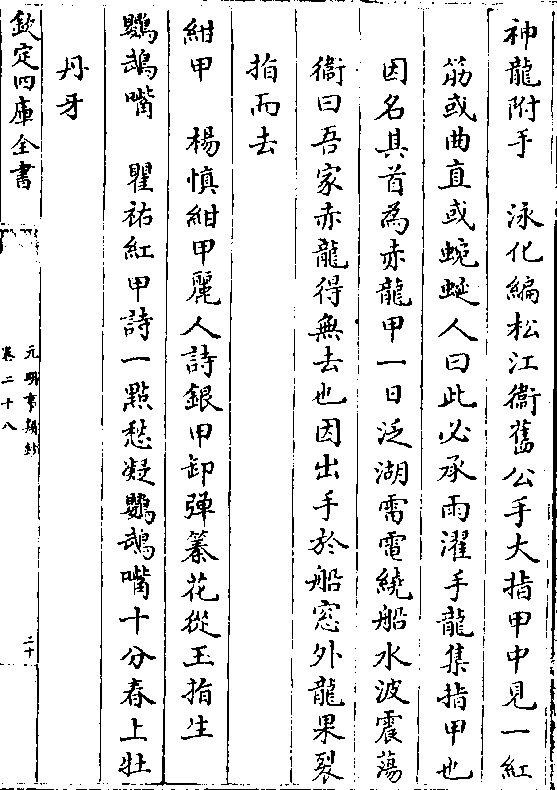 神龍附手　泳化編松江衞舊公手大指甲中見一紅
筋或曲直或蜿蜒人曰此必承雨濯手龍集指甲也
因名其首為赤龍甲一日泛湖雷電繞船水波震蕩
衞曰吾家赤龍得無去也因出手於船窓外龍果裂
指而去
紺甲　楊慎紺甲麗人詩銀甲卸彈纂花從玉指生
鸚鵡嘴　瞿祐紅甲詩一點愁凝鸚鵡嘴十分春上牡
丹牙
欽定四庫全書
元明事類鈔
卷二十八
二十